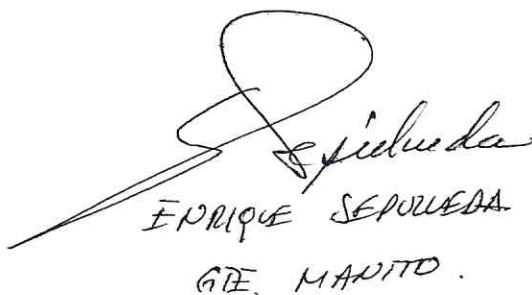 Sepulveda
ENRIQUE SEPULVEDA
GTE. MANTTO.